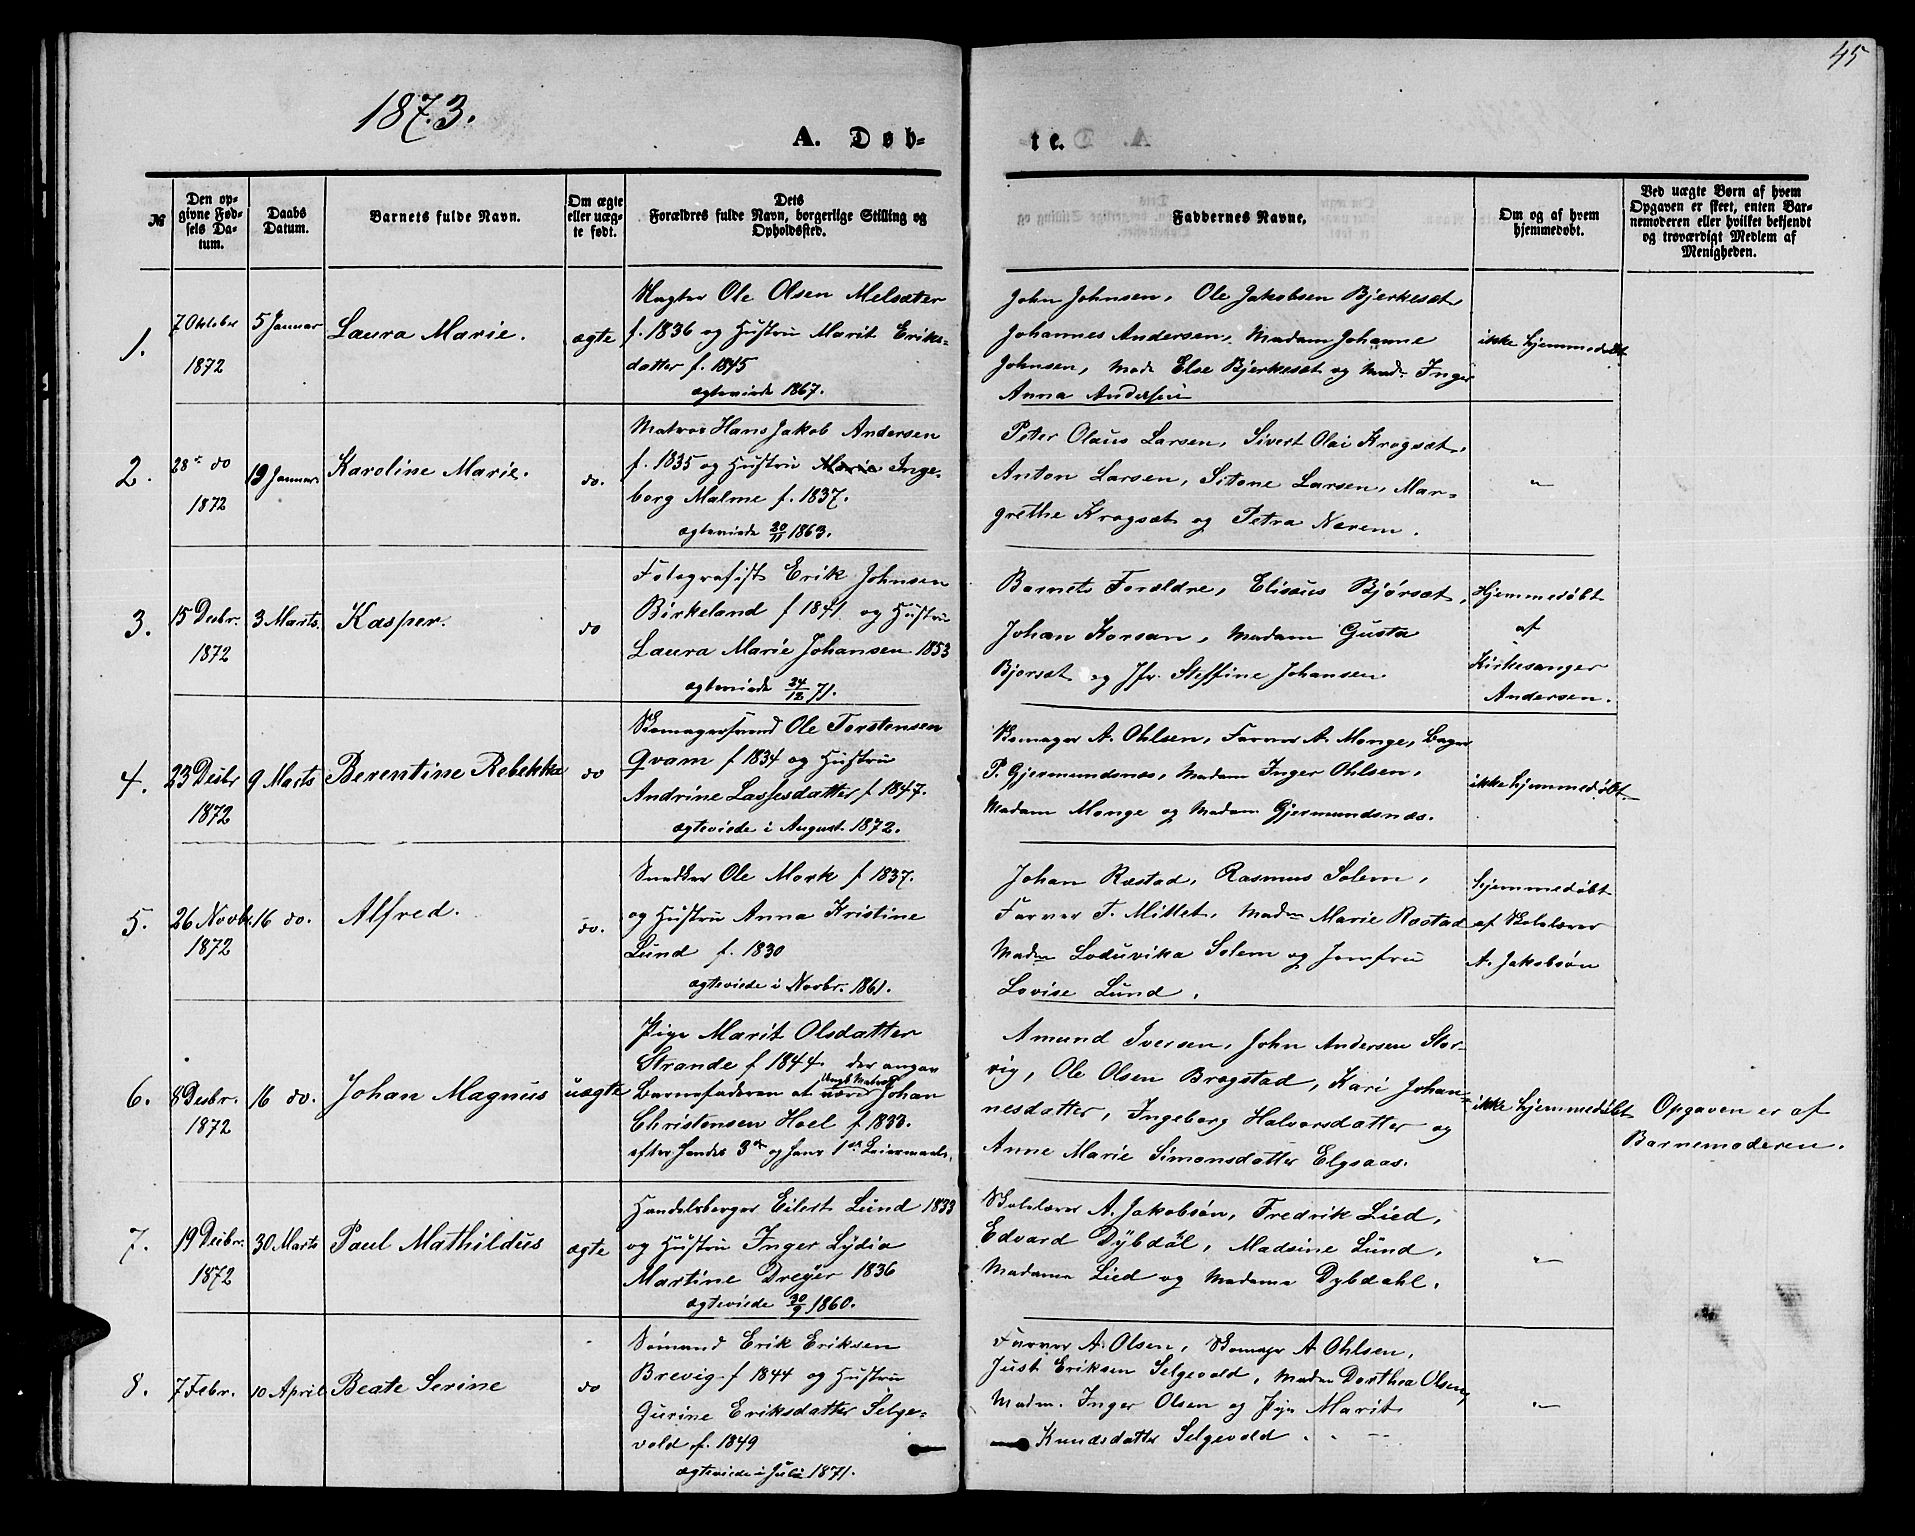 45
1873.
A. Døb-
te.
№
Den op-
givne Fød-
sels Da-
tum.
Daabs
Datum.
Barnets fulde Navn.
Om ægte
eller uæg-
te født.
Dets
Forældres fulde Navn, borgerlige Stilling og
Opholdssted.
Faddernes Navne,
Om og af hvem
hjemmedøbt.
Ved uægte Børn af hvem
Opgaven er skeet, enten Bar-
nemoderen eller hvilket bekjendt
og troværdigt Medlem af
Menigheden.
1.
7 Oktober
1872
5 Januar
Laura Marie.
ægte
Ole Olsen Melsæter
f. 1836 og Hustru Marit Eriks-
datter f. 1845
ægteviede 1867.
John Johnsen, Ole Jakobsen Bjerkesæt,
Johannes Andersen, Madam Johanne
Johnsen, Mad. Else Bjerkesæt og Mad. Inger
Anna Andersen
ikke hjemmedøbt
2.
28de do
1872
19 Januar.
Karoline Marie.
do.
Matros Hans Jakob Andersen
f. 1835 og Hustru Marie Inge-
borg Malme f. 1837.
ægteviede 20/11 1863.
Peter Olaus Larsen, Sivert Olai Krogsæt,
Anton Larsen, Sitone Larsen, Mar-
grethe Krogsæt og Petra Nerem.
"
3.
15 Desbr.
1872
3 Marts.
Kasper.
do
Fotografist Erik Johnsen
Birkeland f 1841 og Hustru
Laura Marie Johansen 1853
ægteviede 24/12 71.
Barnets Forældre, Elisæus Bjørsæt,
Johan Korsan, Madam Gusta
Bjørsæt og Jfr. Steffine Johansen
Hjemmedøbt
af
Kirkesanger
Andersen.
4.
23 Desbr
1872
9 Marts
Berentine Rebekka
do
Skomagersvend Ole Torstensen
Qvam f 1834 og Hustru
Andrine Lassesdatter f 1847.
ægteviede i August 1872.
Skomager A. Ohlsen, Farver A. Monge, Bager
P. Gjermundsnæs, Madam Inger Ohlsen,
Madam Monge og Madam Gjermundsnæs.
ikke hjemmedøbt
5.
26 Novbr.
1872
16 do.
Alfred.
do.
Snedker Ole Mork f 1837.
og Hustru Anna Kristine
Lund f. 1830
ægteviede i Novbr. 1861.
Johan Ræstad, Rasmus Solem,
Farver T. Mittet, Madm Marie Rostad
Madm Loduvika Solem og Jomfru
Lovise Lund.
hjemmedøbt
af Skolelærer
A. Jakobsøn
6.
8 Desbr.
1872
16 do.
Johan Magnus
uægte
Pige Marit Olsdatter
Strande f 1844. der angav
Ungk Matros
Barnefaderen at være Johan
Christensen Hoel f 1833.
efter hendes 3die og hans 1ste Leiermaal.
Amund Iversen, John Andersen Stor-
vig, Ole Olsen Brogstad, Kari Johan-
nesdatter, Ingeborg Halvorsdatter og
Anne Marie Simonsdatter Elgsaas.
ikke hjemmedøbt
Opgaven er af
Barnemoderen.
7.
19 Desbr.
1872
30 Marts
Paul Mathildus
ægte
Handelsborger Eilert Lund 1833
og Hustru Inger Lydia
Martine Dreyer 1836
ægteviede 30/9 1860.
Skolelærer A. Jakobsøn, Fredrik Lied,
Edvard Dybdal, Madsine Lund,
Madame Lied og Madame Dybdahl.
"
8.
7 Febr.
10 April
Beate Serine
do
Sømand Erik Eriksen
Brevig f 1844 og Hustru
Gurine Eriksdatter Selge-
vold f. 1849
ægteviede i Juli 1871.
Farver A. Olsen, Skomager A Ohlsen,
Just Eriksen Selgevold, Madm Dorthea Olsen,
Madm. Inger Olsen og Pige Marit
Knudsdatter Selgevold.
"